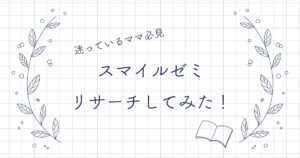 迷っているママ必見
スマイルゼミ
リサーチしてみた！